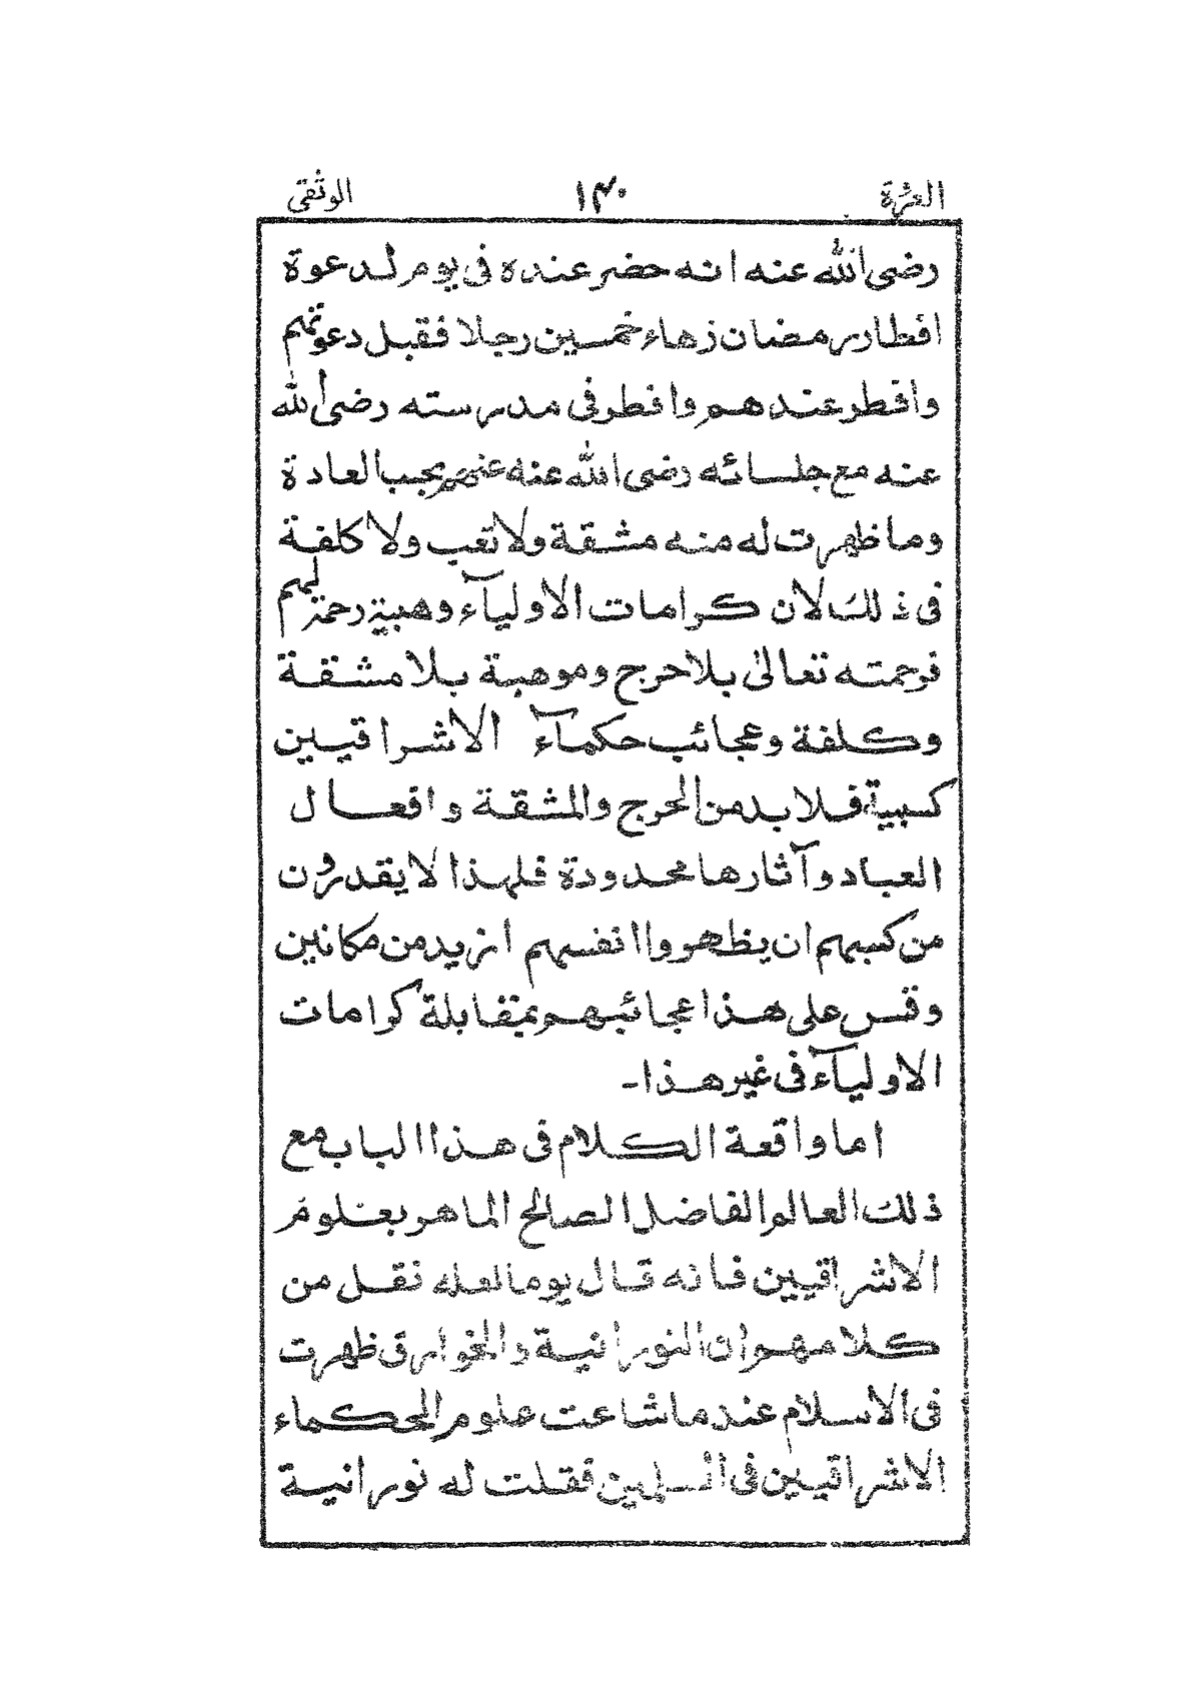 العروة ١٣٠ الوثقى
رضى الله عنه انه حضر عنده فى يوم لدعوة
افطار رمضان زهاء خمسين رجلا فقبل دعوتهم
وافطر عندهم وافطر فى مدرسته رضى الله
عنه مع جلسائه رضى الله عنه عنهم بحسب العادة
وما ظهرت له منه مشقة ولا تعب ولا كلفة
فى ذلك لان كرامات الاولياء وهبية رحمة لهم
فرحمته تعالى بلا حرج وموهبة بلا مشقة
وكلفة وعجائب حكماء الاشراقيين
كسبية فلا بد من الحرج والمشقة وافعال
العباد وآثارها محدودة فلهذا لا يقدرون
من كسبهم ان يظهروا انفسهم ازيد من مكانين
وقس على هذا عجائبهم بمقابلة كرامات
الاولياء فى غير هذا۔
اما واقعة الكلام فى هذا الباب مع
ذلك العالم الفاضل الصالح الماهر بعلوم
الاشراقيين فانه قال يوما لعله نقل من
كلامهم ان النورانية والخوارق ظهرت
فى الاسلام عند ما شاعت علوم الحكماء
الاشراقيين فى المسلمين فقلت له نورانية